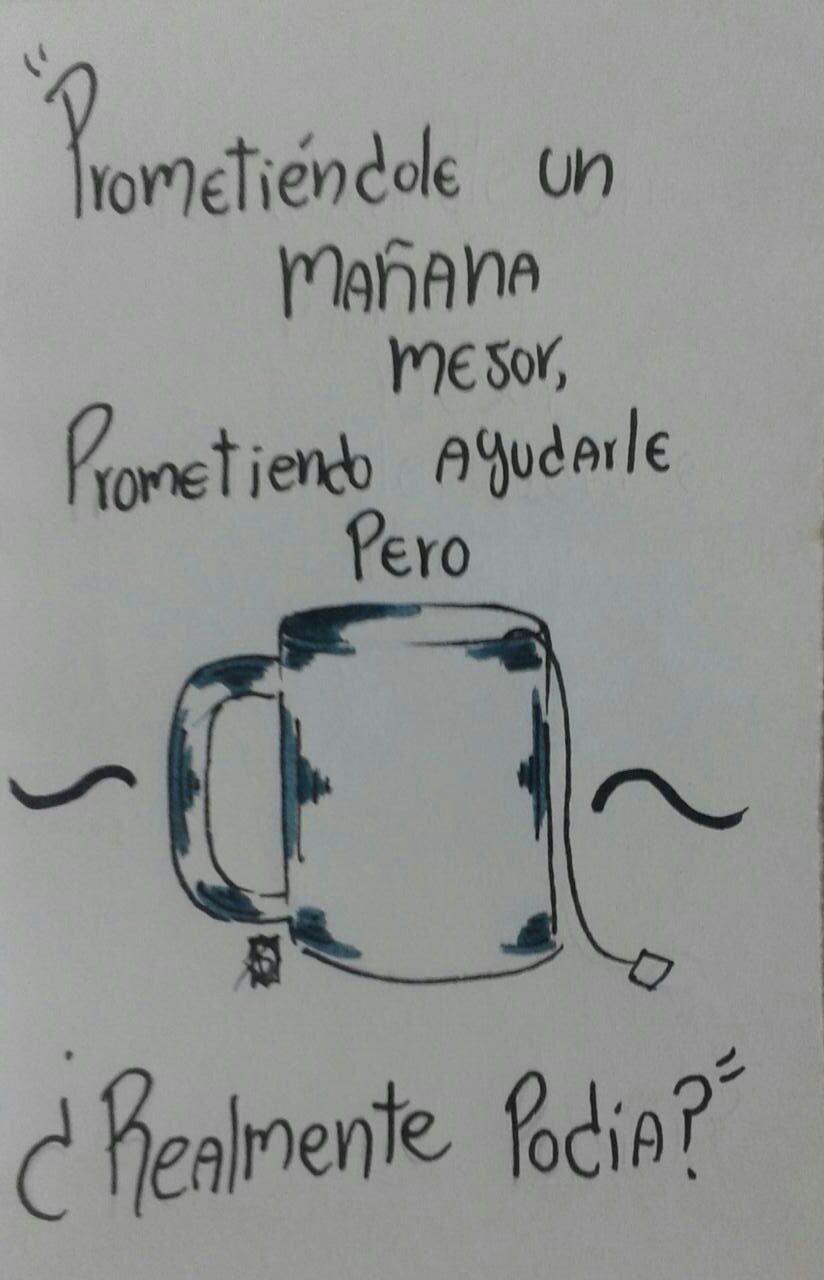 "Prometiéndole un
mañana
mejor,
Prometiendo ayudarle
Pero
¿Realmente Podia?"